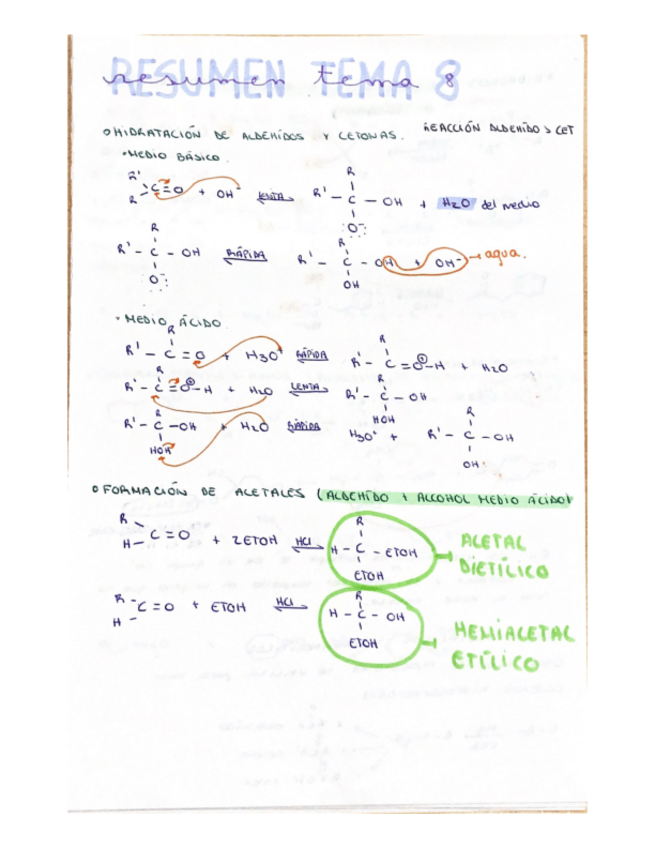 RESUMEN TEMA 8
resumen tema 8
○ HIDRATACIÓN DE ALDEHÍDOS Y CETONAS. REACCIÓN ALDEHÍDO > CET
· MEDIO BÁSICO.
R' R C=O + OH⁻ LENTA R' - C - OH + H2O del medio
R O⁻
R' - C - OH RÁPIDA R' - C - OH + OH⁻ → agua.
R O⁻ R OH
· MEDIO ÁCIDO.
R' - C = O + H3O⁺ RÁPIDA R' - C = O⁺-H + H2O
R R
R' - C = O⁺-H + H2O LENTA R' - C - OH
R R HOH
R' - C - OH + H2O RÁPIDA H3O⁺ + R' - C - OH
R HOH R OH
○ FORMACIÓN DE ACETALES (ALDEHÍDO + ALCOHOL MEDIO ÁCIDO)
R H C=O + 2ETOH HCl H - C - ETOH
R ETOH
ACETAL
DIETÍLICO
R H C=O + ETOH HCl H - C - OH
R ETOH
HEMIACETAL
ETÍLICO